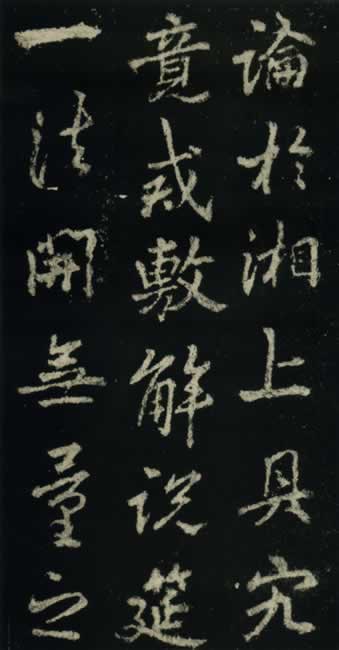 論於湘上具究
竟戒敷解說筵
一法開無量之